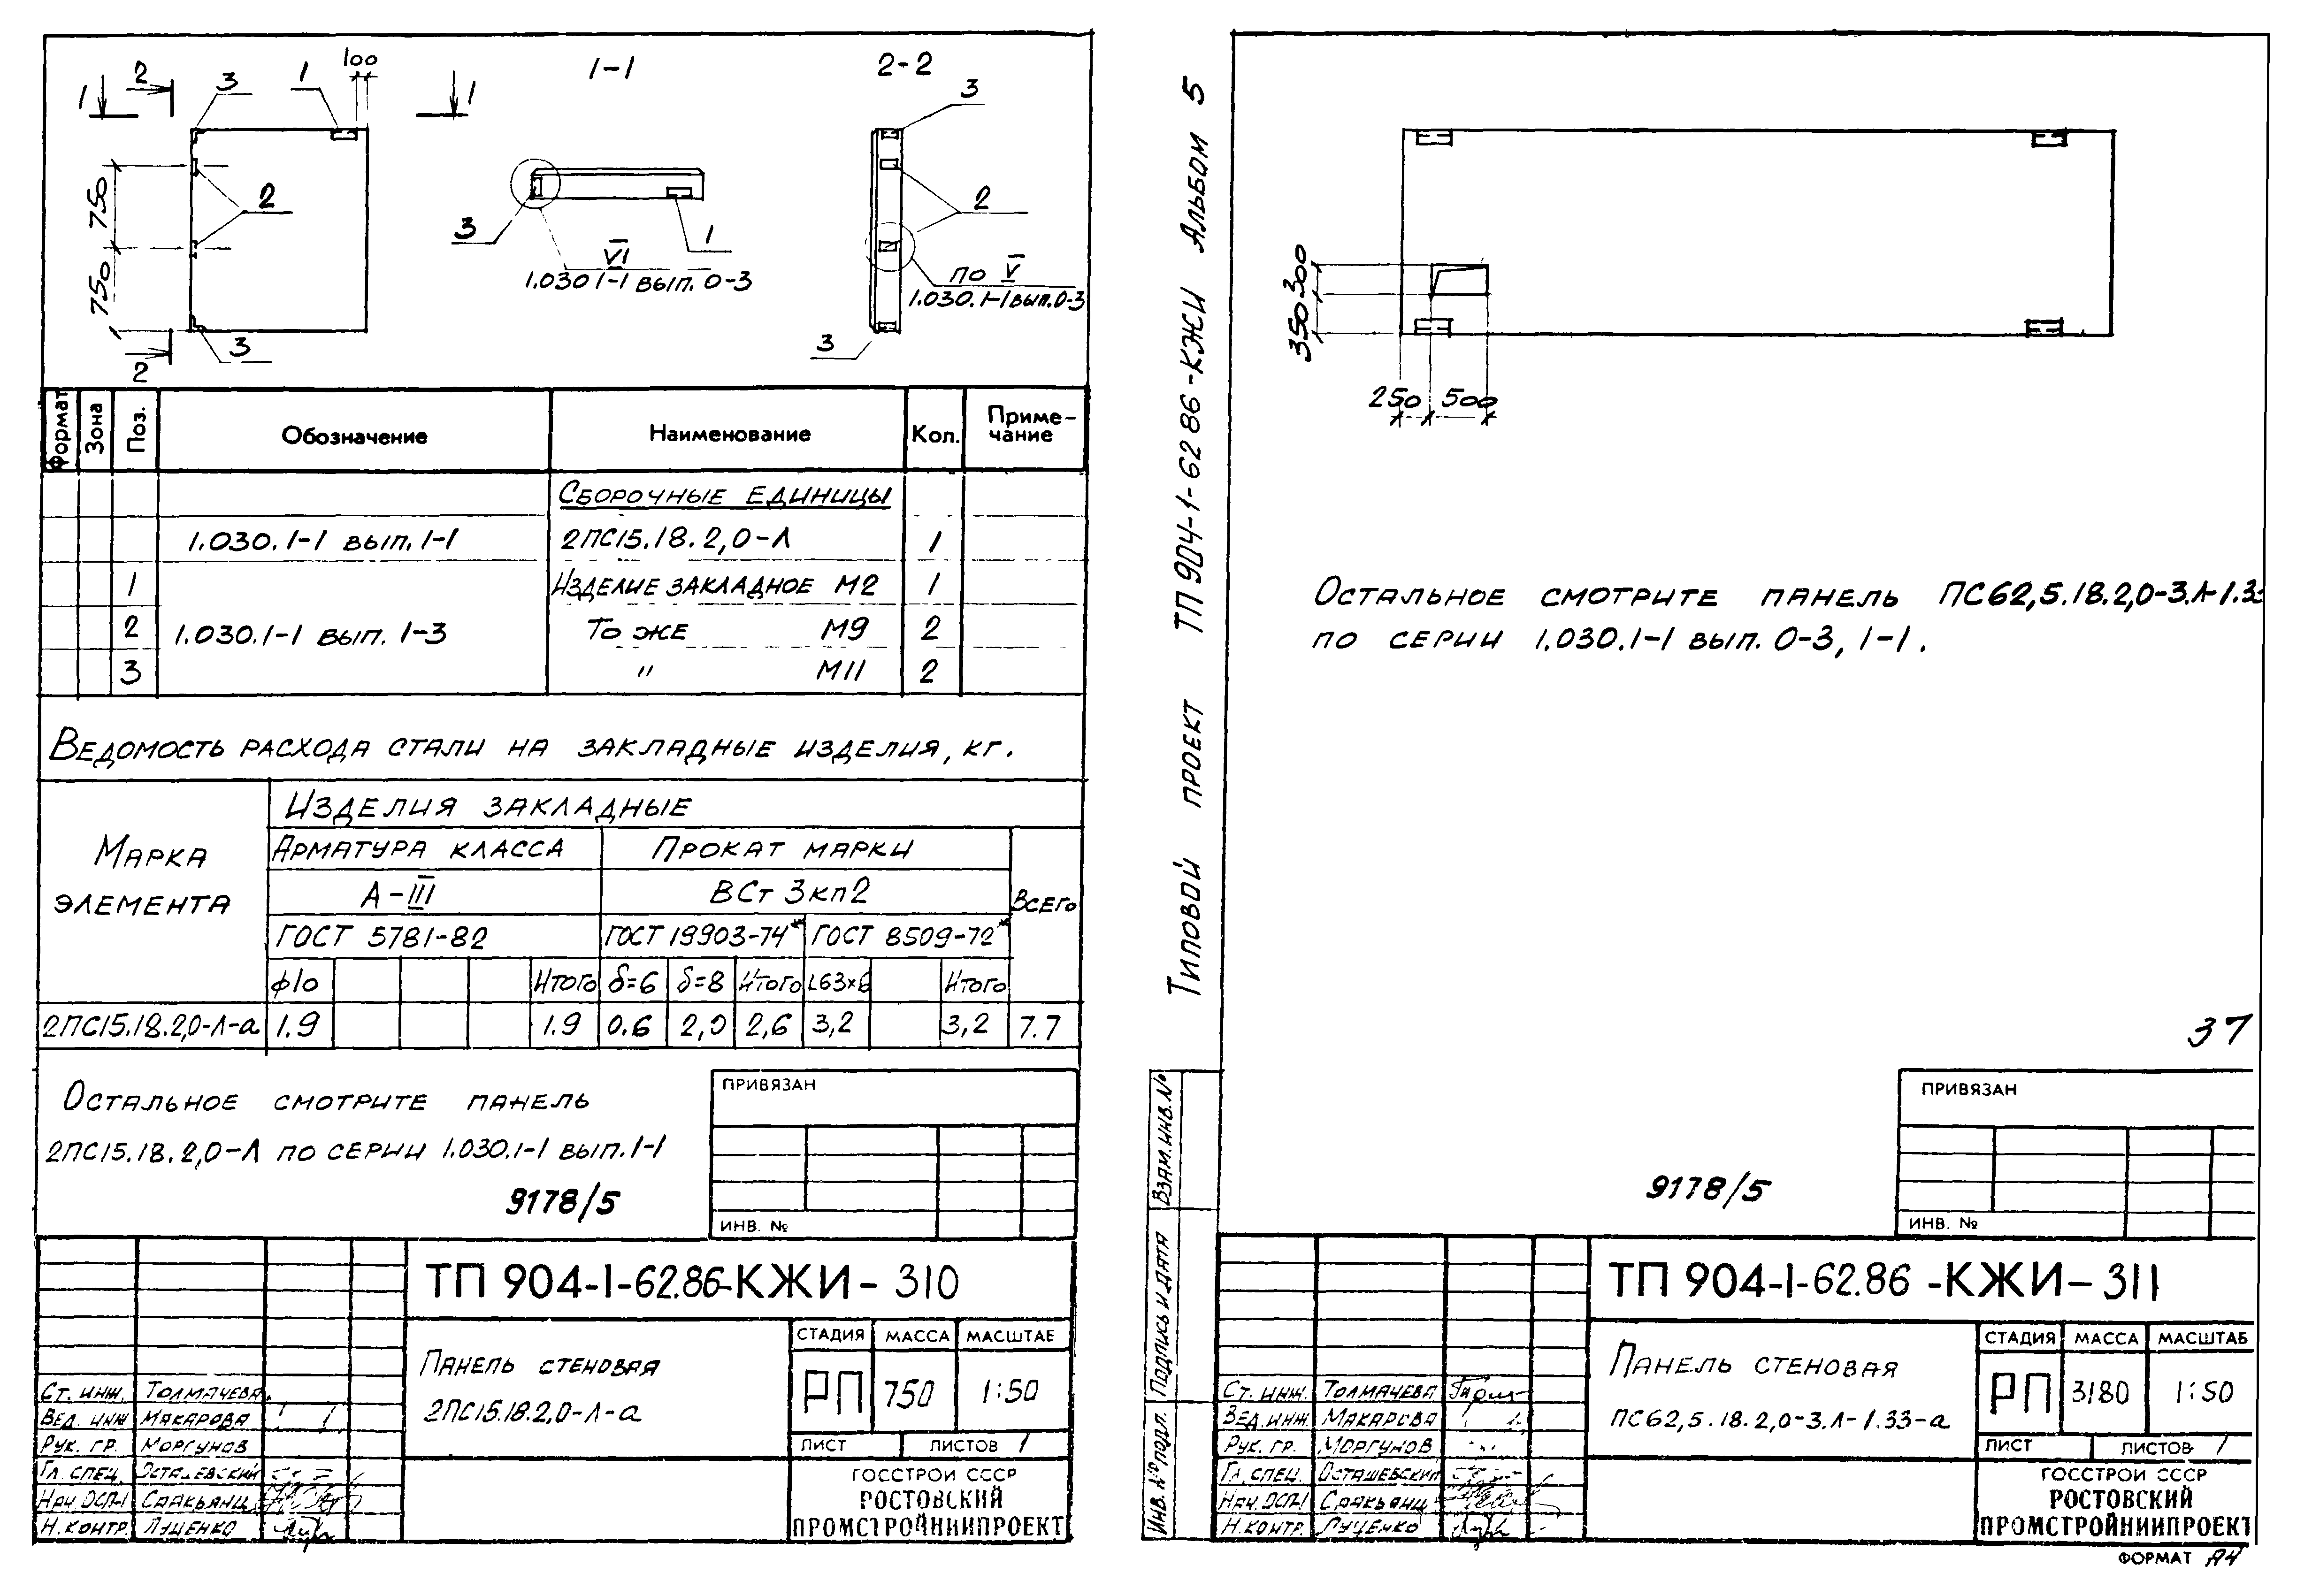 1
2
3
1
100
1
1-1
2-2
3
750
2
750
3
2
3
1
VI
1.030 1-1 вып. 0-3
2
по V
1.030.1-1 вып. 0-3
3
Формат
Зона
Поз.
Обозначение
Наименование
Кол.
Приме-
чание
Сборочные единицы
1.030.1-1 вып. 1-1 2ПС15.18.2,0-Л 1
1 Изделие закладное М2 1
2 1.030.1-1 вып. 1-3 То же М9 2
3 " М11 2
Ведомость расхода стали на закладные изделия, кг.
Марка
элемента
Изделия закладные
Арматура класса Прокат марки
А-III ВСт 3кп2 Всего
ГОСТ 5781-82 ГОСТ 19903-74* ГОСТ 8509-72*
ф10 Итого δ=6 δ=8 Итого Итого
2ПС15.18.2,0-Л-а 1.9 1.9 0.6 2,0 2,6 3,2 3,2 7.7
Остальное смотрите панель
2ПС15.18.2,0-Л по серии 1.030.1-1 вып. 1-1
9178/5
ПРИВЯЗАН
ИНВ. №
ТП 904-1-62.86-КЖИ-310
Панель стеновая
2ПС15.18.2,0-Л-а
СТАДИЯ МАССА МАСШТАБ
РП 750 1:50
ЛИСТ ЛИСТОВ 1
Ст. инж. Толмачева
Вед. инж Макарова
Рук. гр. Моргунов
Гл. спец. Осташевский
Нач. ОСП-1 Саакьянц
Н. контр. Луценко
ГОССТРОЙ СССР
РОСТОВСКИЙ
ПРОМСТРОЙНИИПРОЕКТ
Типовой проект ТП 904-1-62 86-КЖИ Альбом 5
300
350
250 500
Остальное смотрите панель ПС62,5.18.2,0-3.Л-1.33
по серии 1.030.1-1 вып. 0-3, 1-1.
37
ПРИВЯЗАН
9178/5
ИНВ. №
Взам. инв. №
Подпись и дата
Инв. № подл.
ТП 904-1-62.86-КЖИ-311
Панель стеновая
ПС62,5.18.2,0-3.Л-1.33-а
СТАДИЯ МАССА МАСШТАБ
РП 3180 1:50
ЛИСТ ЛИСТОВ 1
Ст. инж. Толмачева
Вед. инж. Макарова
Рук. гр. Моргунов
Гл. спец. Осташевский
Нач. ОСП-1 Саакьянц
Н. контр. Луценко
ГОССТРОЙ СССР
РОСТОВСКИЙ
ПРОМСТРОЙНИИПРОЕКТ
ФОРМАТ А4